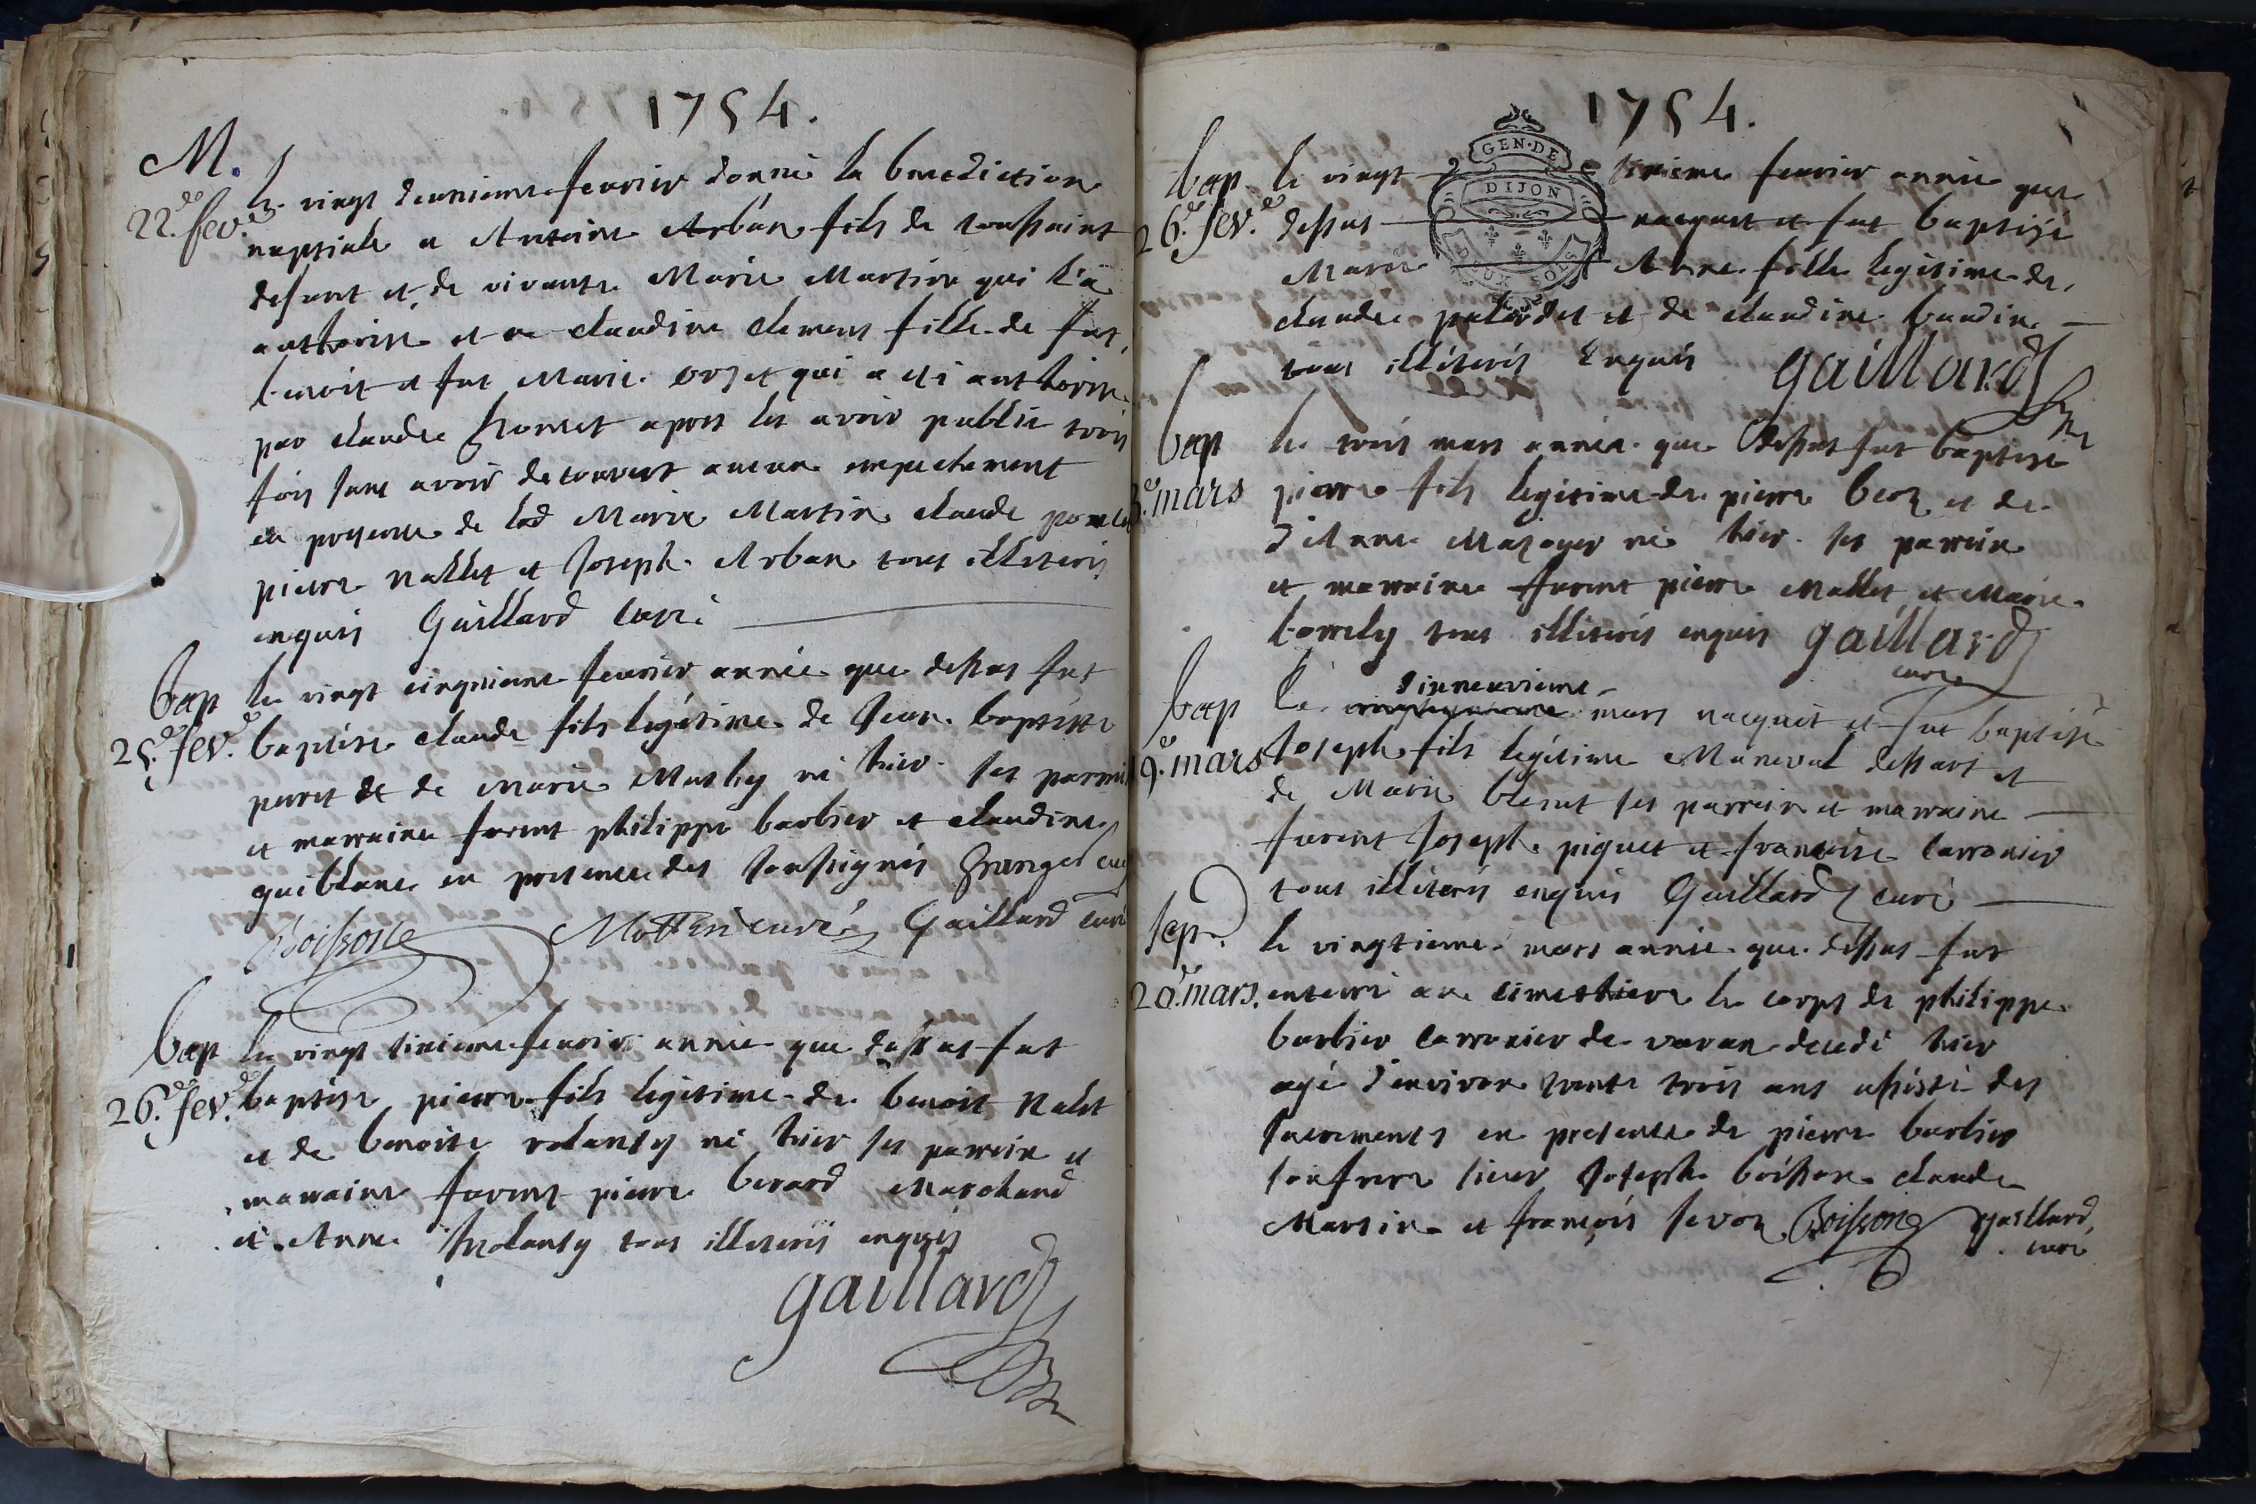 1754.
M.
22.e fev.er
le vingt deuxieme fevrier donné la benediction
nuptiale a Antoine Arban fils de toussaint
defunt et de vivante Marie Martin qui l'a
authorisé et a claudine clement fille de fut
benoit et fut Marie orset qui a eté authorisé
par claude après les avoir publié trois
fois sans avoir decouvert aucun empechement
en presence de lad Marie Martin claude
pierre nallet et Joseph Arban tous illiteris
enquis Gaillard curé
bap
25.e fev.er
le vingt cinquieme fevrier année que dessus fut
baptisé claude fils legitime de Jean baptiste
peret et de marie Mathy né hier ses parrain
et marraine furent philippe barbier et claudine
guiblanc en presence des soussignés Granger curé
Boisson Gaillard curé
bap
26.e fev.er
le vingt sixieme fevrier année que dessus fut
baptisé pierre fils legitime de benoit Nalet
et de benoite né hier ses parrain et
marraine furent pierre berard Marchand
et Anne tous illiteris enquis
gaillard
1754.
GEN·DE
DIJON
DEUX SOLS
bap
26.e fev.er
le vingt sixieme fevrier année que
dessus naquit et fut baptisé
Marie Anne fille legitime de
claude et de claudine baudin
tous illiteris enquis gaillard
bap
3.e mars
le trois mars année que dessus fut baptisé
pierre fils legitime de pierre beoz et de
d'Anne Mazoyer né hier ses parrain
et marraine furent pierre Nallet et Marie
tous illiteris enquis gaillard
curé
bap
19.e mars
dixneuvieme
le mars nacquit et fut baptisé
Joseph fils legitime dessart et
de Marie ses parrain et marraine
furent Joseph piquet et francoise carronier
tous illiteris enquis Gaillard curé
sep.
20.e mars.
le vingtieme mars année que dessus fut
enterré au cimethiere le corps de philippe
barbier carronier de varan decedé hier
agé d'environ trente trois ans assisté des
sacrements en presence de pierre barbier
son frere sieur Joseph boisson claude
Martin et françois Boisson gaillard
curé